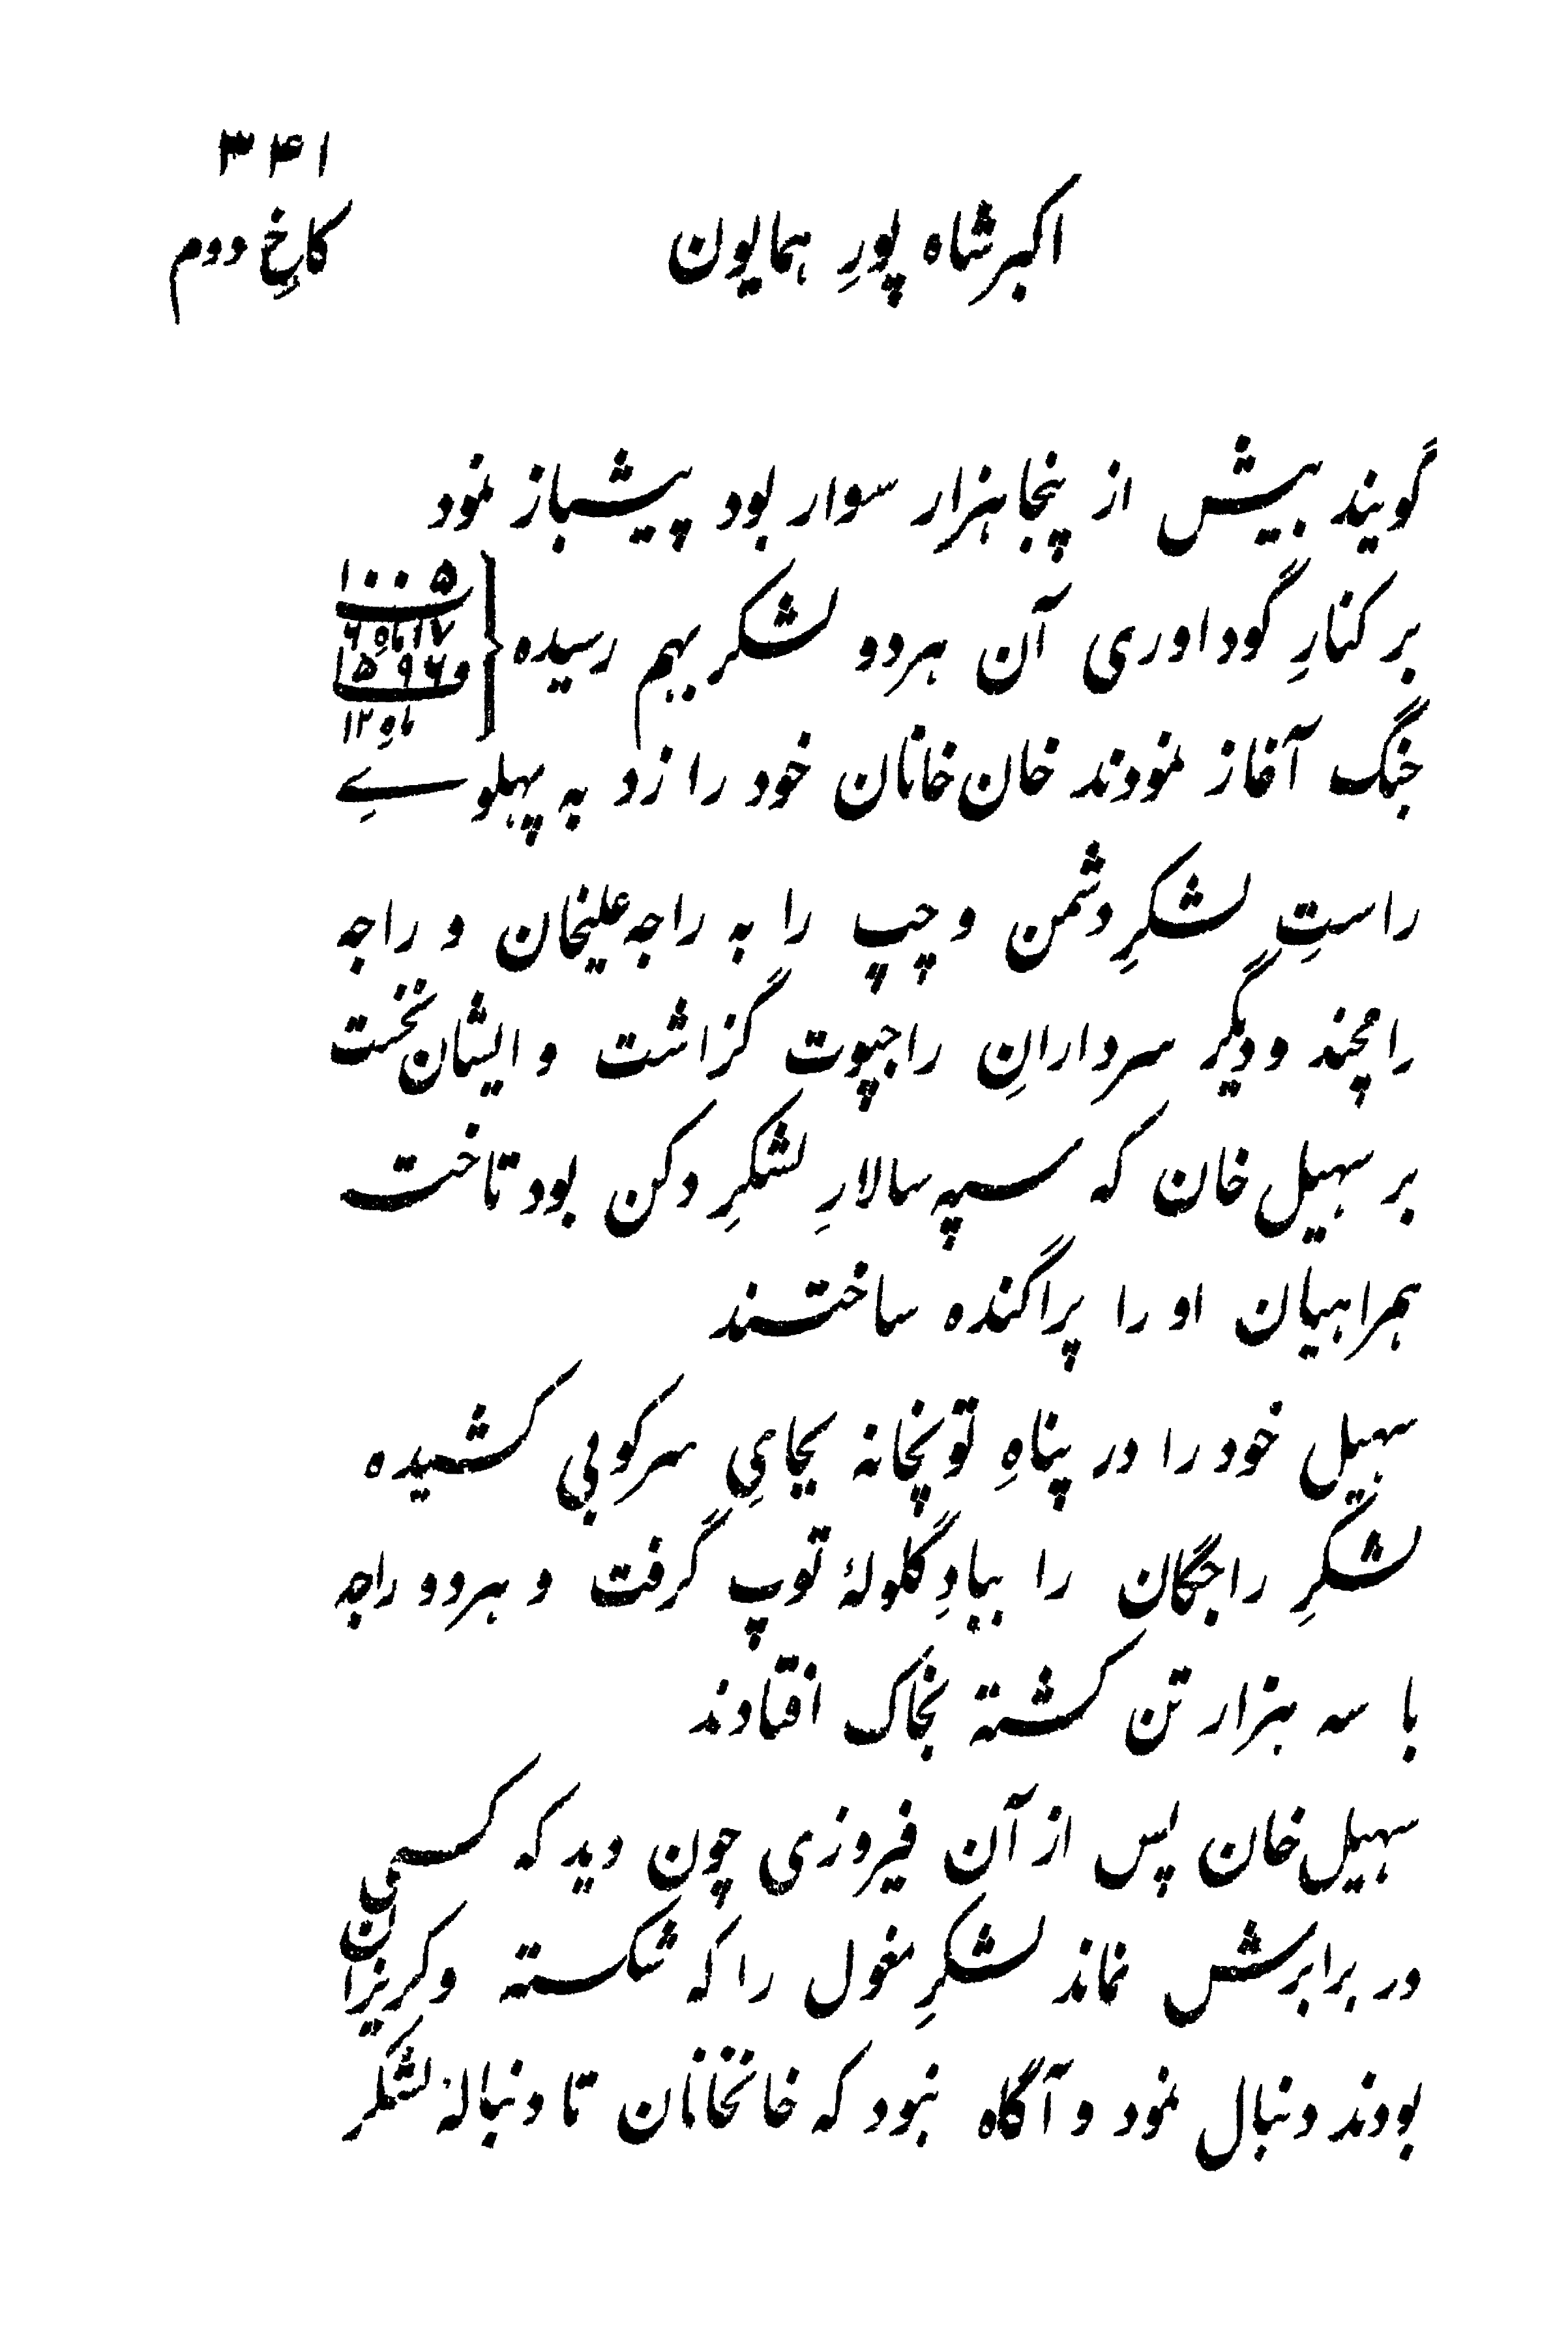 ۳۴۱
اکبرشاه پورِ همایون
کاخِ دوم
گویند بیش از پنجاهزار سوار بود پیشباز نمود
بر کنارِ گوداوری آن هردو لشکر بهم رسیده
۱۰۰۵
۱۷ ماهِ ۶
و ۱۵۹۶
ماهِ ۱۲
جنگ آغاز نمودند خان‌خانان خود را زد به پهلوےِ
راستِ لشکرِ دشمن و چپ را به راجه علیخان و راجه
رامچند و دیگر سردارانِ راجپوت گزاشت و ایشان نخست
بر سهیل خان که سپه سالارِ لشکرِ دکن بود تاخت
همراهیان او را پراگنده ساختند
سهیل خود را در پناهِ توپخانه بجایِ سرکوبی کشیده
لشکرِ راجگان را ببادِ گلولۀ توپ گرفت و هردو راجه
با سه هزار تن کشته بخاک افتادند
سهیل خان پس از آن فیروزی چون دید که کسی
در برابرش نماند لشکرِ مغول را که شکسته و گریزان
بودند دنبال نمود و آگاه نبود که خانخانان تا دنبالۀ لشکر